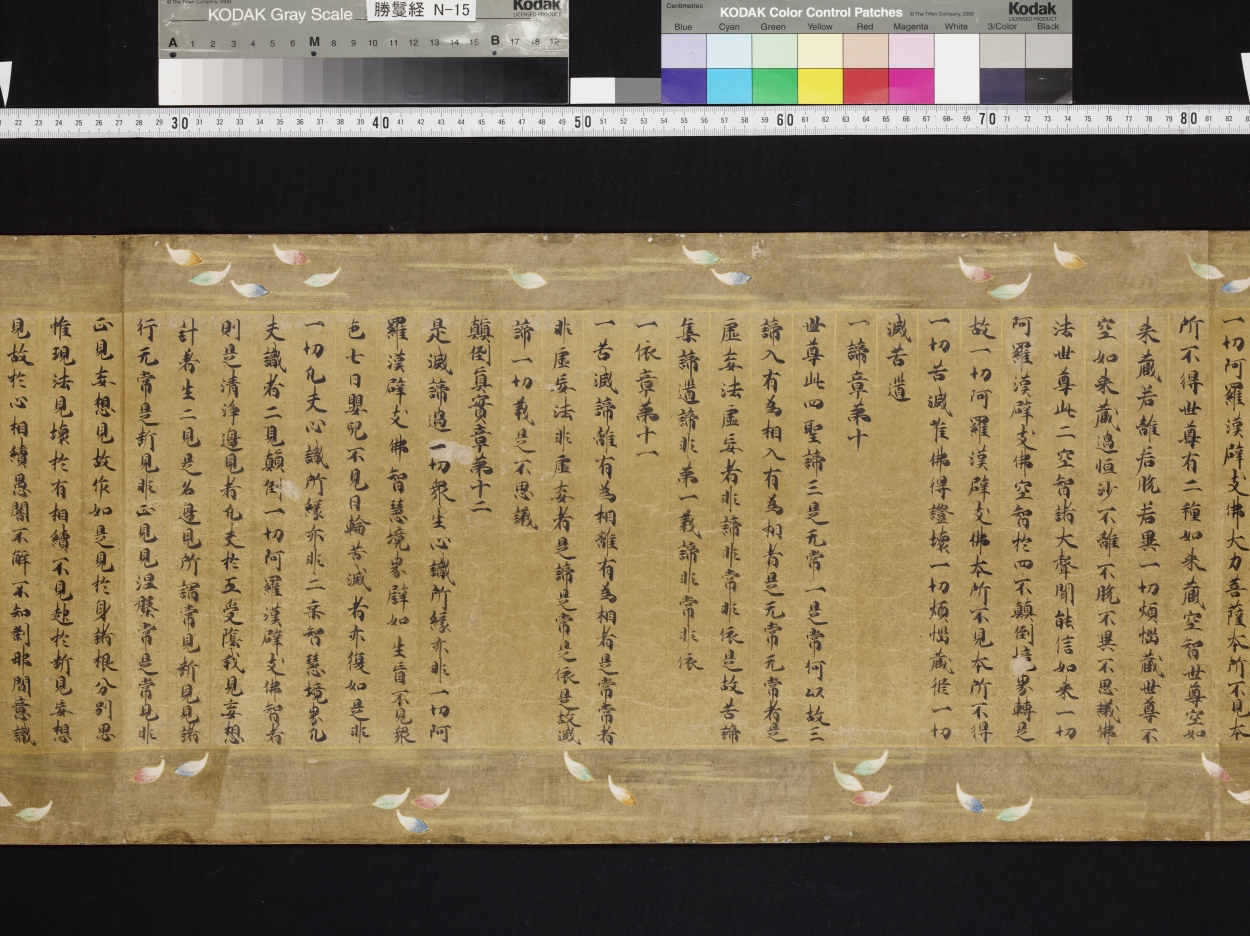 KODAK Gray Scale
勝鬘経 N-15
Kodak
LICENSED PRODUCT
© The Tiffen Company, 2000
A 1 2 3 4 5 6 M 8 9 10 11 12 13 14 15 B 17 18 19
Centimetres
KODAK Color Control Patches
© The Tiffen Company, 2000
Kodak
LICENSED PRODUCT
Blue Cyan Green Yellow Red Magenta White 3/Color Black
22 23 24 25 26 27 28 29 30 31 32 33 34 35 36 37 38 39 40 41 42 43 44 45 46 47 48 49 50 51 52 53 54 55 56 57 58 59 60 61 62 63 64 65 66 67 68 69 70 71 72 73 74 75 76 77 78 79 80 81 82
一切阿羅漢辟支佛大力菩薩本所不見本
所不得世尊有二種如来蔵空智世尊空如
来蔵若離若脱若異一切煩惱蔵世尊不
空如来蔵過恒沙不離不脱不異不思議佛
法世尊此二空智諸大聲聞能信如来一切
阿羅漢辟支佛空智於四不顛倒境界轉是
故一切阿羅漢辟支佛本所不見本所不得
一切苦滅唯佛得證壊一切煩惱蔵修一切
滅苦道
一諦章第十
世尊此四聖諦三是无常一是常何以故三
諦入有為相入有為相者是无常无常者是
虚妄法虚妄者非諦非常非依是故苦諦
集諦道諦非第一義諦非常非依
一依章第十一
一苦滅諦離有為相離有為相者是常常者
非虚妄法非虚妄者是諦是常是依是故滅
諦一切義是不思議
顛倒真實章第十二
是滅諦過一切衆生心識所縁亦非一切阿
羅漢辟支佛智慧境界辟如生盲不見衆
色七日嬰兒不見日輪苦滅者亦復如是非
一切凡夫心識所縁亦非二乗智慧境界凡
夫識者二見顛倒一切阿羅漢辟支佛智者
則是清浄邊見者凡夫於五受陰我見妄想
計著生二見是名邊見所謂常見断見見諸
行无常是断見非正見見涅槃常是常見非
正見妄想見故作如是見於身諸根分別思
惟現法見壊於有相續不見起於断見妄想
見故於心相續愚闇不解不知刹那間意識